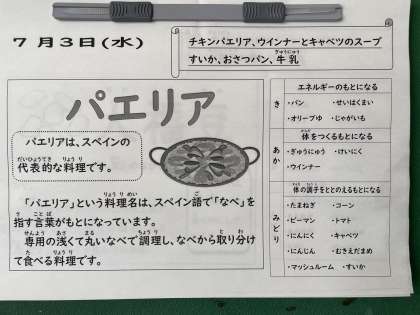 ７月３日(水)
チキンパエリア、ウインナーとキャベツのスープ
すいか、おさつパン、牛乳
ぎゅうにゅう
パエリア
パエリアは、スペインの
だいひょうてき りょうり
代表的な料理です。
りょうりめい ご
「パエリア」という料理名は、スペイン語で「なべ」を
さ ことば
指す言葉がもとになっています。
せんよう あさ まる ちょうり と わ
専用の浅くて丸いなべで調理し、なべから取り分け
た りょうり
て食べる料理です。
き
エネルギーのもとになる
・パン ・せいはくまい
・オリーブゆ ・じゃがいも
あか
からだ
体をつくるもとになる
・ぎゅうにゅう ・けいにく
・ウインナー
みどり
からだ ちょうし
体の調子をととのえるもとになる
・たまねぎ ・コーン
・ピーマン ・トマト
・にんにく ・キャベツ
・にんじん ・むきえだまめ
・マッシュルーム ・すいか